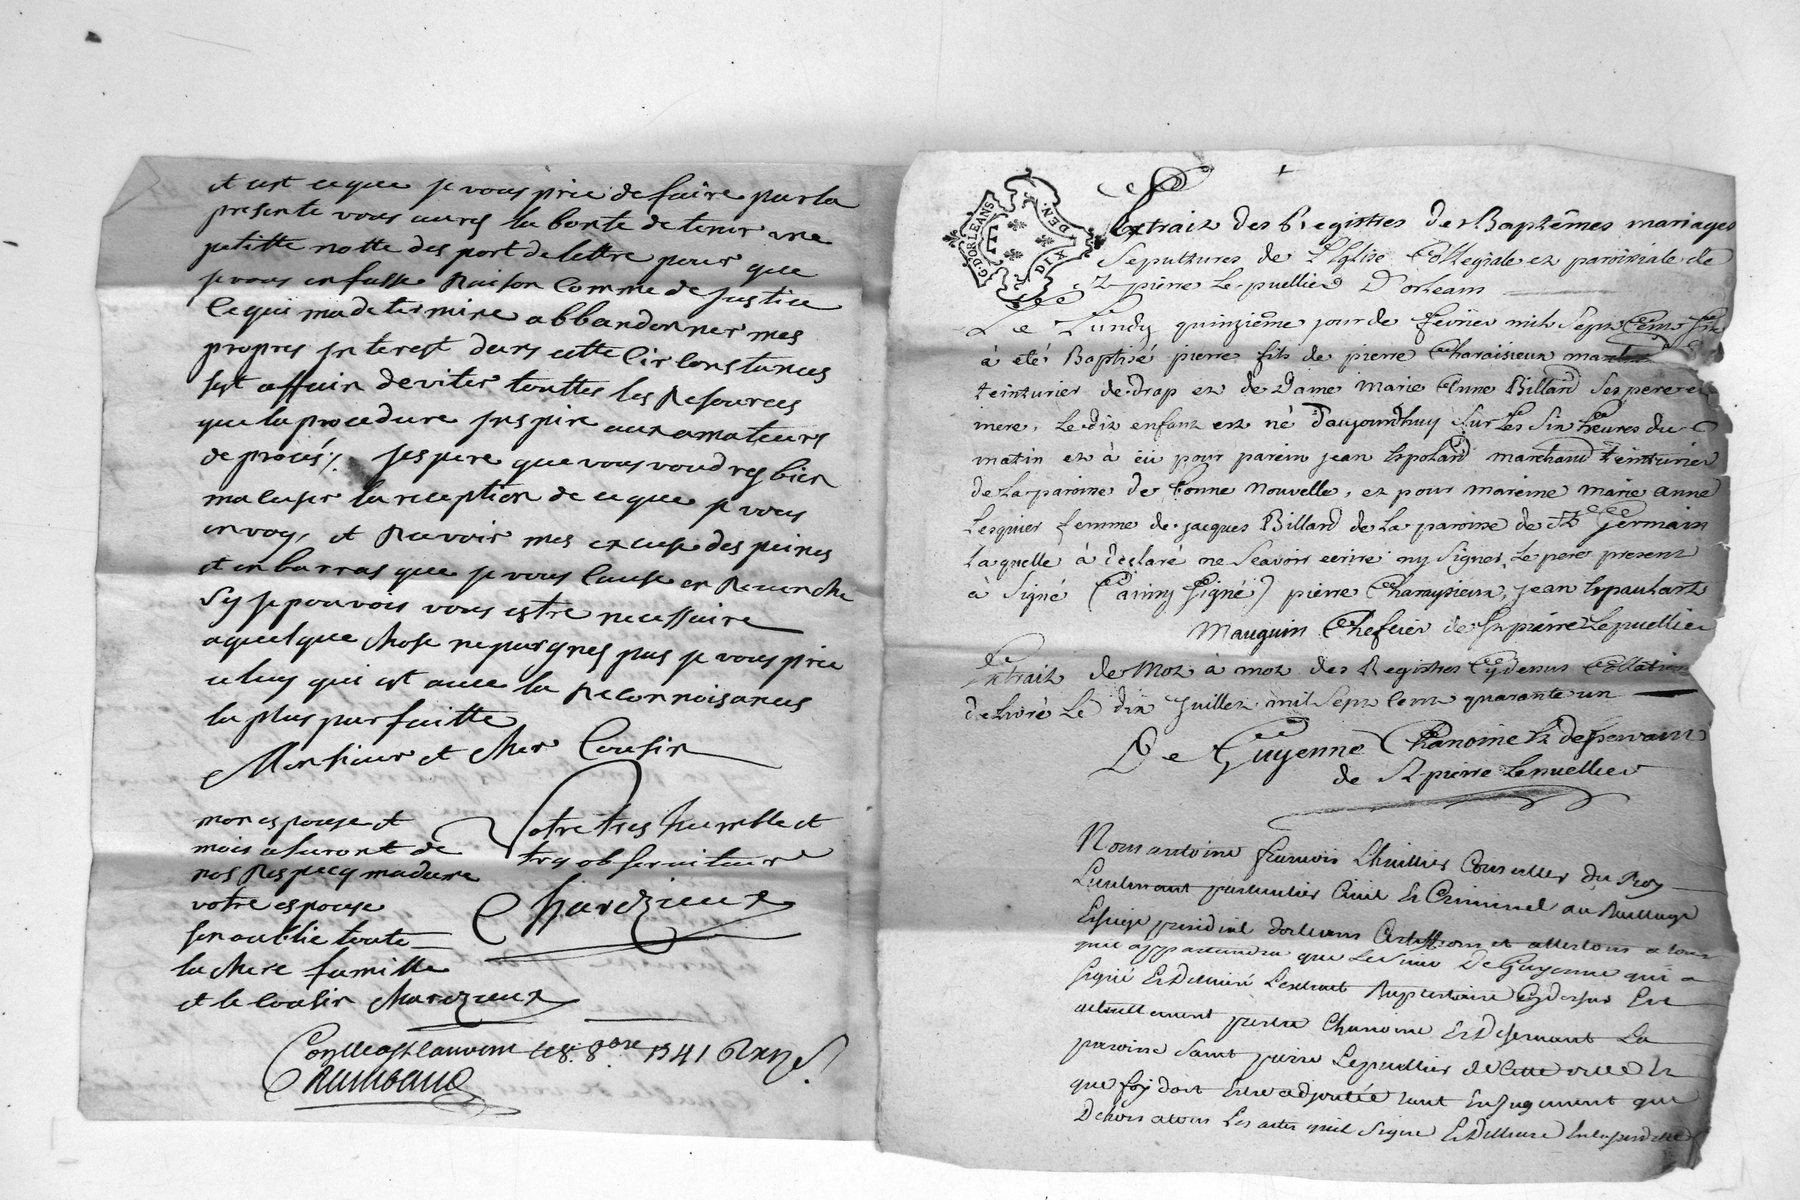 et cest ceque je vous prie de faire par la
presente vous aures la bonté de tenir une
petitte notte des port de lettre pour que
je vous en fasse Raison Comme de justice
Ce qui ma determiné abbandonner mes
propres interest dans cette Circonstances
est affin deviter touttes les Resources
que la procedure inspire aux amateurs
de procés /. jespere que vous voudres bien
macuser la reception de ceque je vous
envoy, et Recevoir mes excuse des peines
et enbarras que je vous Cause en Revenche
sy je pouvois vous estre necessaire
a quelque chose nepargnes pas je vous prie
celuy qui est avec la Reconnoisances
la plus parfaitte
Monsieur et cher Cousin
mon espouse et
mois asuront de
nos Respecq madame
votre espouse
sen oublie toute
la chere famille
et le cousin Charezieux
Votre tres humble et
tres obs serviteur
Charezieux
Conte et lauvent le 8: 8bre 1741
G. D'ORLEANS
DIX DEN.
Extrait des Registres des Baptêmes mariages
Sepultures de L'Eglise Collegiale et paroissiale de
St pierre Le puellier D'orleans
Le Lundy quinzième jour de fevrier mil Sept Cent six
à été Baptisé pierre fils de pierre Charaisieux marchand
teinturier de drap et de Dame Marie Anne Billard Ses pere et
mere, Le dit enfant est né d'aujourdhuy Sur Les Six heures du
matin et à eü pour parein jean Lepolard marchand teinturier
de La paroisse de bonne Nouvelle, et pour mareine Marie anne
Lesguier femme de jacques Billard de La paroisse de St Germain
Laquelle à déclaré ne Scavoir ecrire ny Signer, Le pere present
à Signé (ainsy Signé) pierre Charaysieux, jean Lepaulart
Mauguin Chefcier de St pierre Lepuellier
Extrait de Mot à mot des Registres Cydessus Collation
delivré Le dix Juillet mil Sept Cent quarante un
De Guyenne Chanoine Et desservant
de St pierre Lepuellier
Nous antoine francois Lhuillier Conseiller du Roy
Lieutenant particulier Civil Et Criminel au Bailliage
Et siege presidial dorleans Certiffions et attestons a tous
quil appartiendra que Le Sieur De Guyenne qui a
signé Et Delivré Lextrait Baptistaire Cydessus Est
actuellement pretre Chanoine Et Desservant La
paroisse Saint pierre Lepuellier de Cette ville Et
que foy doit Estre adjoutée tant En Jugement que
Dehors a tous Les actes quil Signe Et Delivre En laditte